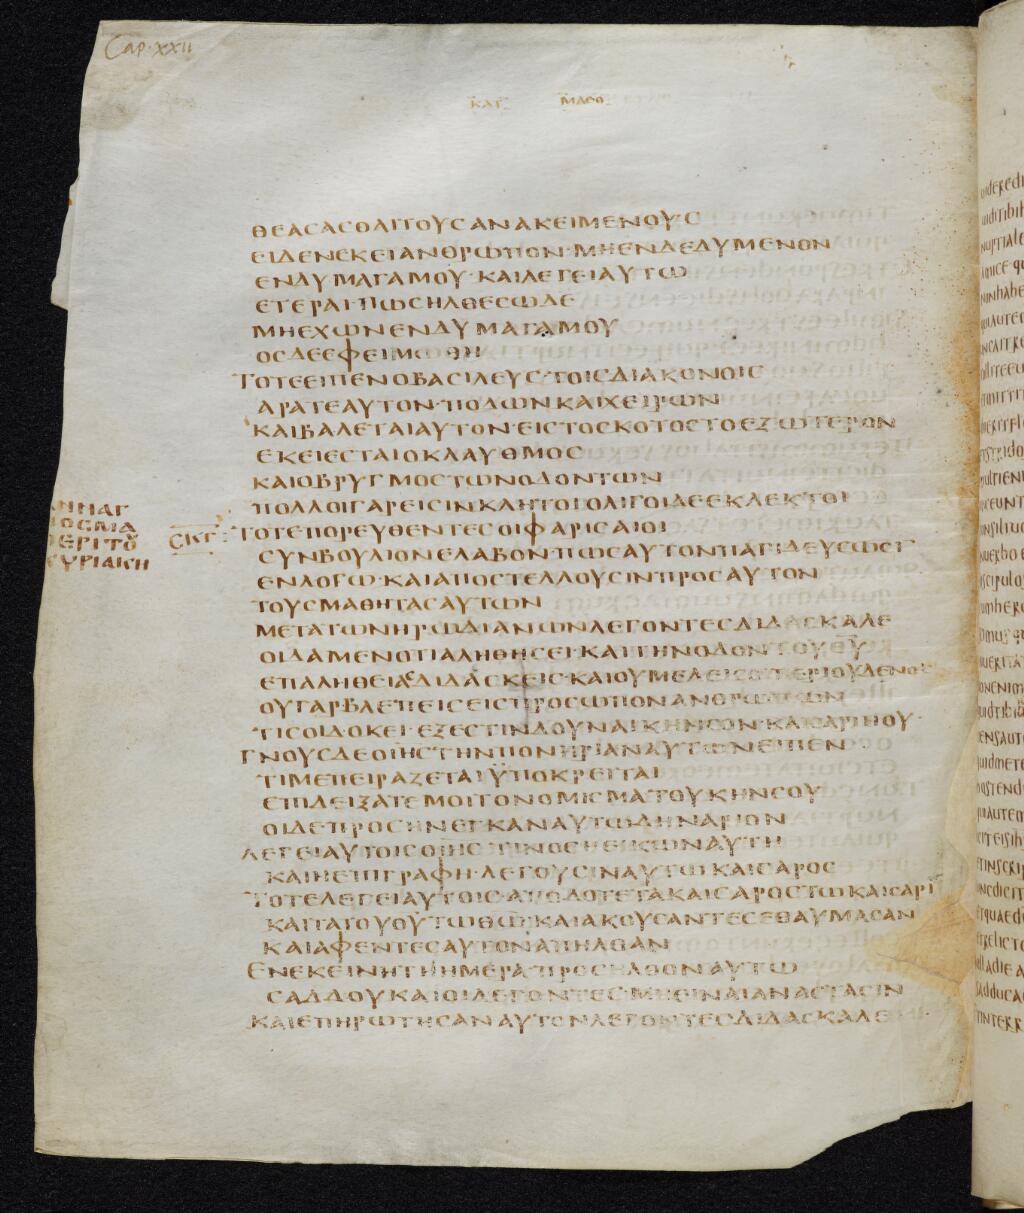 Cap·xxii
ΚΑΤ ΜΑΘΘ
ΘΕΑΣΑΣΘΑΙΤΟΥΣΑΝΑΚΕΙΜΕΝΟΥΣ
ΕΙΔΕΝΕΚΕΙΑΝΘΡΩΠΟΝ·ΜΗΕΝΔΕΔΥΜΕΝΟΝ
ΕΝΔΥΜΑΓΑΜΟΥ·ΚΑΙΛΕΓΕΙΑΥΤΩ
ΕΤΕΡΑΙ·ΠΩΣΗΛΘΕΣΩΔΕ
ΜΗΕΧΩΝΕΝΔΥΜΑΓΑΜΟΥ
ΟΣΔΕΕΦΕΙΜΩΘΗ
ΤΟΤΕΕΙΠΕΝΟΒΑΣΙΛΕΥΣ·ΤΟΙΣΔΙΑΚΟΝΟΙΣ
ΑΡΑΤΕΑΥΤΟΝ·ΠΟΔΩΝΚΑΙΧΕΙΡΩΝ
ΚΑΙΒΑΛΕΤΑΙΑΥΤΟΝ·ΕΙΣΤΟΣΚΟΤΟΣΤΟΕΞΩΤΕΡΟΝ
ΕΚΕΙΕΣΤΑΙΟΚΛΑΥΘΜΟΣ
ΚΑΙΟΒΡΥΓΜΟΣΤΩΝΟΔΟΝΤΩΝ
ΠΟΛΛΟΙΓΑΡΕΙΣΙΝΚΛΗΤΟΙΟΛΙΓΟΙΔΕΕΚΛΕΚΤΟΙ
ΤΟΤΕΠΟΡΕΥΘΕΝΤΕΣΟΙΦΑΡΙΣΑΙΟΙ
ΣΥΝΒΟΥΛΙΟΝΕΛΑΒΟΝ·ΠΩΣΑΥΤΟΝΠΑΓΙΔΕΥΣΩΣΙ
ΕΝΛΟΓΩ·ΚΑΙΑΠΟΣΤΕΛΛΟΥΣΙΝΠΡΟΣΑΥΤΟΝ
ΤΟΥΣΜΑΘΗΤΑΣΑΥΤΩΝ
ΜΕΤΑΤΩΝΗΡΩΔΙΑΝΩΝΛΕΓΟΝΤΕΣΔΙΔΑΣΚΑΛΕ
ΟΙΔΑΜΕΝΟΤΙΑΛΗΘΗΣΕΙ·ΚΑΙΤΗΝΟΔΟΝΤΟΥΘΥ
ΕΠΑΛΗΘΕΙΑΔΙΔΑΣΚΕΙΣ·ΚΑΙΟΥΜΕΛΕΙΣΟΙΠΕΡΙΟΥΔΕΝΟΣ
ΟΥΓΑΡΒΛΕΠΕΙΣΕΙΣΠΡΟΣΩΠΟΝΑΝΘΡΩΠΩΝ
ΤΙΣΟΙΔΟΚΕΙ·ΕΞΕΣΤΙΝΔΟΥΝΑΙΚΗΝΣΟΝ·ΚΑΙΣΑΡΙΗΟΥ
ΓΝΟΥΣΔΕΟΙΗΣΤΗΝΠΟΝΗΡΙΑΝΑΥΤΩΝΕΙΠΕΝ
ΤΙΜΕΠΕΙΡΑΖΕΤΑΙΫΠΟΚΡΕΙΤΑΙ
ΕΠΙΔΕΙΞΑΤΕΜΟΙΤΟΝΟΜΙΣΜΑΤΟΥΚΗΝΣΟΥ
ΟΙΔΕΠΡΟΣΗΝΕΓΚΑΝΑΥΤΩΔΗΝΑΡΙΟΝ
ΛΕΓΕΙΑΥΤΟΙΣΟΙΗΣΤΙΝΟΣΗΕΙΚΩΝΑΥΤΗ
ΚΑΙΗΕΠΙΓΡΑΦΗ·ΛΕΓΟΥΣΙΝΑΥΤΩΚΑΙΣΑΡΟΣ
ΤΟΤΕΛΕΓΕΙΑΥΤΟΙΣ·ΑΠΟΔΟΤΕΤΑΚΑΙΣΑΡΟΣΤΩΚΑΙΣΑΡΙ
ΚΑΙΤΑΤΟΥΘΥΤΩΘΩ·ΚΑΙΑΚΟΥΣΑΝΤΕΣΕΘΑΥΜΑΣΑΝ
ΚΑΙΑΦΕΝΤΕΣΑΥΤΟΝΑΠΗΛΘΑΝ
ΕΝΕΚΕΙΝΗΤΗΗΜΕΡΑ·ΠΡΟΣΗΛΘΟΝΑΥΤΩ
ΣΑΔΔΟΥΚΑΙΟΙΛΕΓΟΝΤΕΣ·ΜΗΕΙΝΑΙΑΝΑΣΤΑΣΙΝ
ΚΑΙΕΠΗΡΩΤΗΣΑΝΑΥΤΟΝΛΕΓΟΝΤΕΣΔΙΔΑΣΚΑΛΕ
ΝΝΑΓ
ΟΣΜΑ
ΠΕΡΙΤΟΥ
ΚΥΡΙΑΚΗ
ΣΚΓ